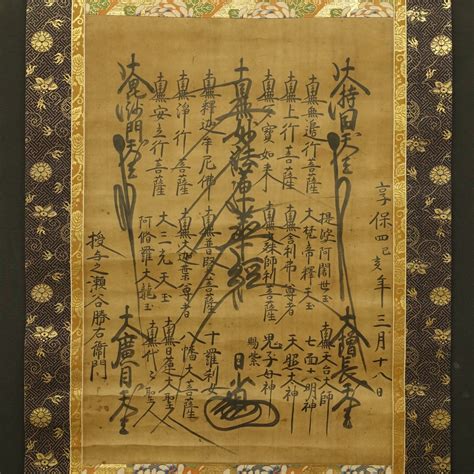 享保四己亥年三月十八日
大持国天王
大增長天王
南無無邊行菩薩
南無上行菩薩
南無多寳如来
提婆阿闍世王
大梵帝釋天王
南無舎利弗尊者
南無文殊師利菩薩
南無天台大師
七面大明神
天照大神
鬼子母神
南無妙法蓮華経
日
南無釋迦牟尼佛
南無淨行菩薩
南無安立行菩薩
南無普賢菩薩
南無大迦葉尊者
大三光天王
阿修羅大龍王
十羅刹女
八幡大菩薩
南無日蓮大聖人
大毘沙門天王
大廣目天王
授与之瀬谷勝右衛門